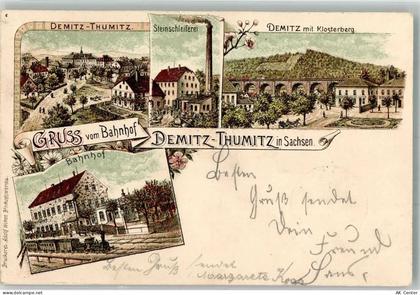 DEMITZ-THUMITZ.
Steinschleiferei
DEMITZ mit Klosterberg.
GRUSS vom Bahnhof DEMITZ-THUMITZ in Sachsen.
Bahnhof
Besten
Gruß sendet
Dein
Freund
Hans
Besten Gruß sendet
Margarete
AK Center